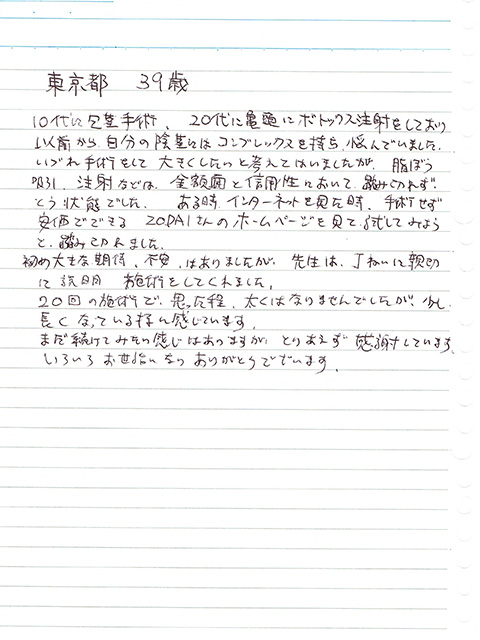 東京都 39歳
10代に包茎手術、20代に亀頭にボトックス注射をしており
以前から自分の陰茎にはコンプレックスを持ち、悩んでいました。
いづれ手術をして大きくしたいと考えてはいましたが、脂ぼう
吸引、注射などは、金額面と信用性において踏みきれず
とう状態でした。 ある時、インターネットを見た時、手術せず
安価でできる ZODAIさんのホームページを見て、試してみよう
と、踏みきれました。
初め大きな期待、不安、はありましたが、先生は、丁ねいに親切
に説明 施術をしてくれました。
20回の施術で、思った程、太くはなりませんでしたが、少し
長くなっている様に感じています。
まだ続けてみたい感じはありますが、とりあえず感謝しています。
いろいろお世話になりありがとうございます。